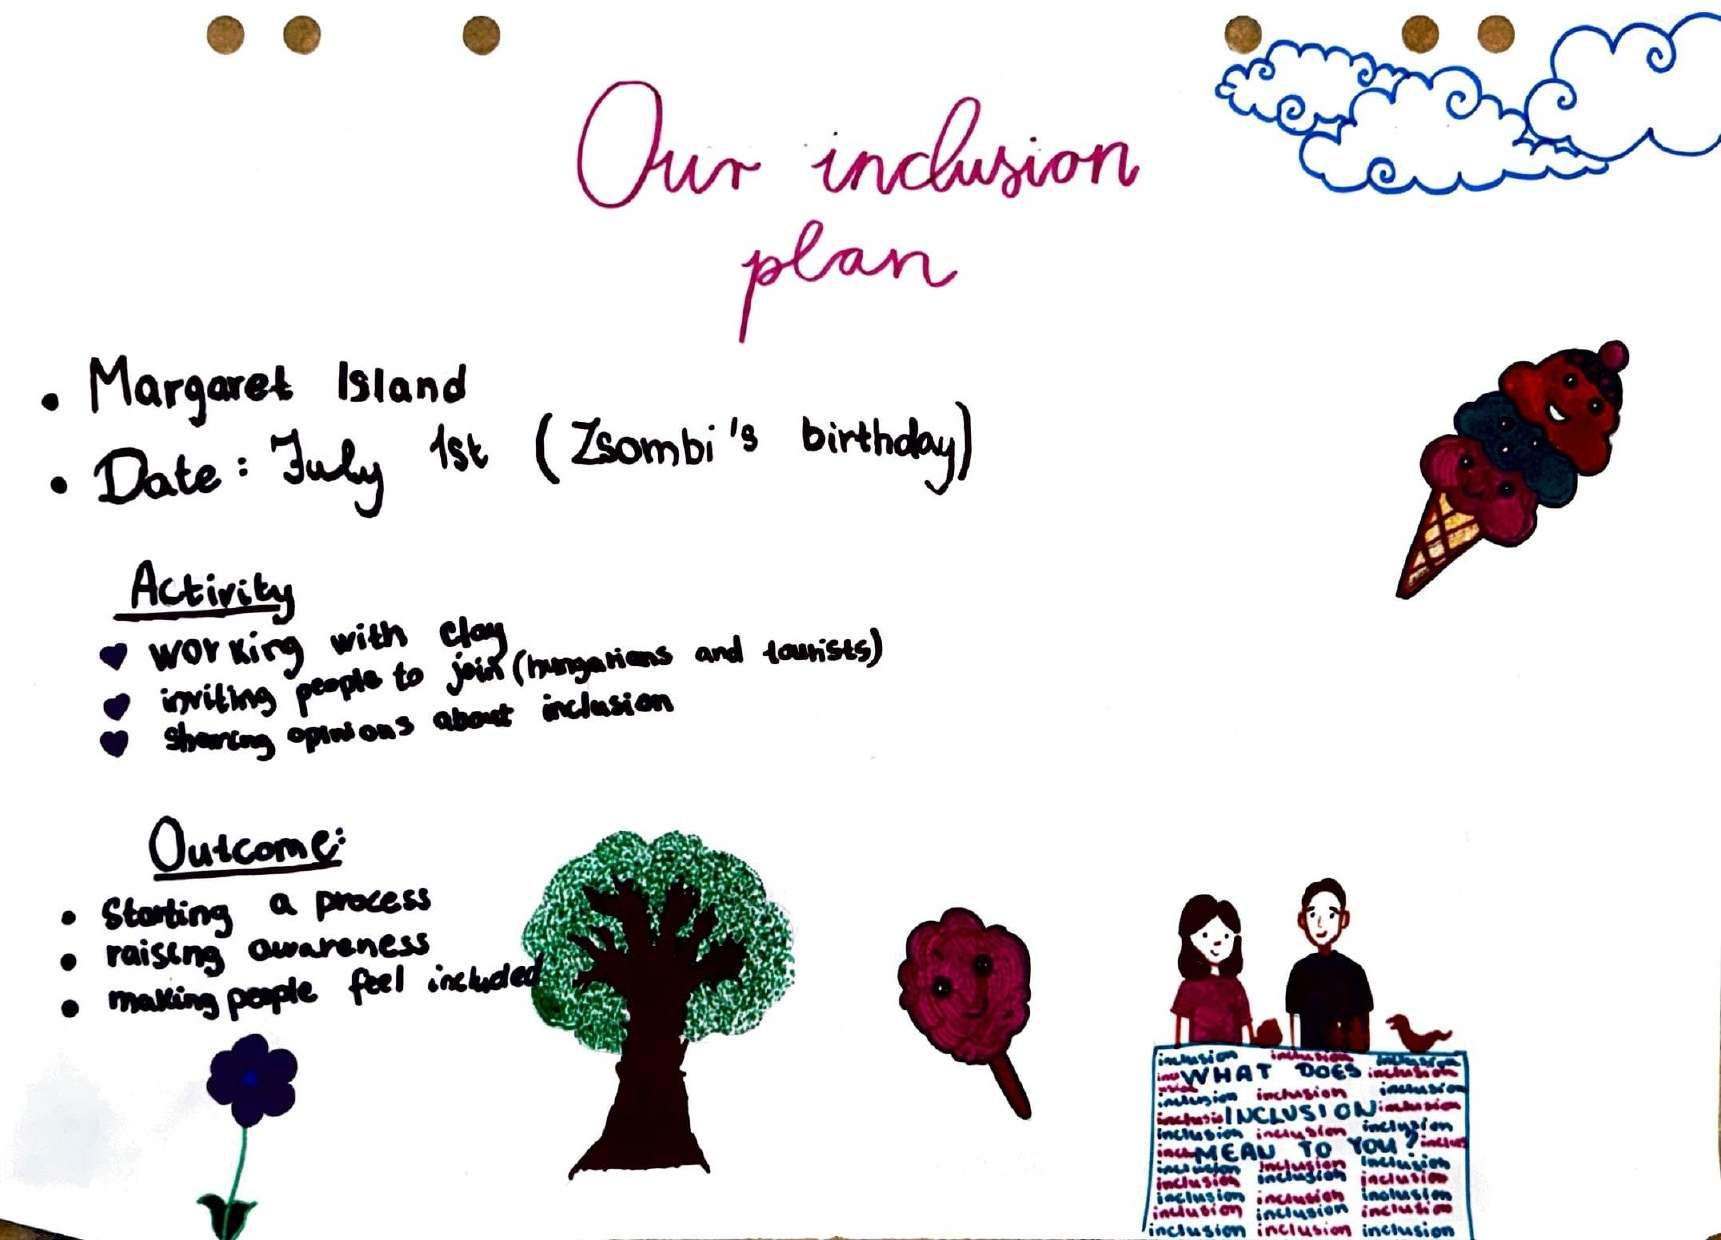 Our inclusion
plan
• Margaret Island
• Date: July 1st (Zsombi's birthday)
Activity
♥ working with clay
♥ inviting people to join (hungarians and tourists)
♥ sharing opinions about inclusion
Outcome:
• Starting a process
• raising awareness
• making people feel included
inclusion inclusion inclusion
inc WHAT DOES inclusion
inclusion inclusion inclusion
inclusi INCLUSION inclusion
inclusion inclusion inclusion
incl MEAN TO YOU? inclus
inclusion inclusion inclusion
inclusion inclusion inclusion
inclusion inclusion inclusion
inclusion inclusion inclusion
inclusion inclusion inclusion